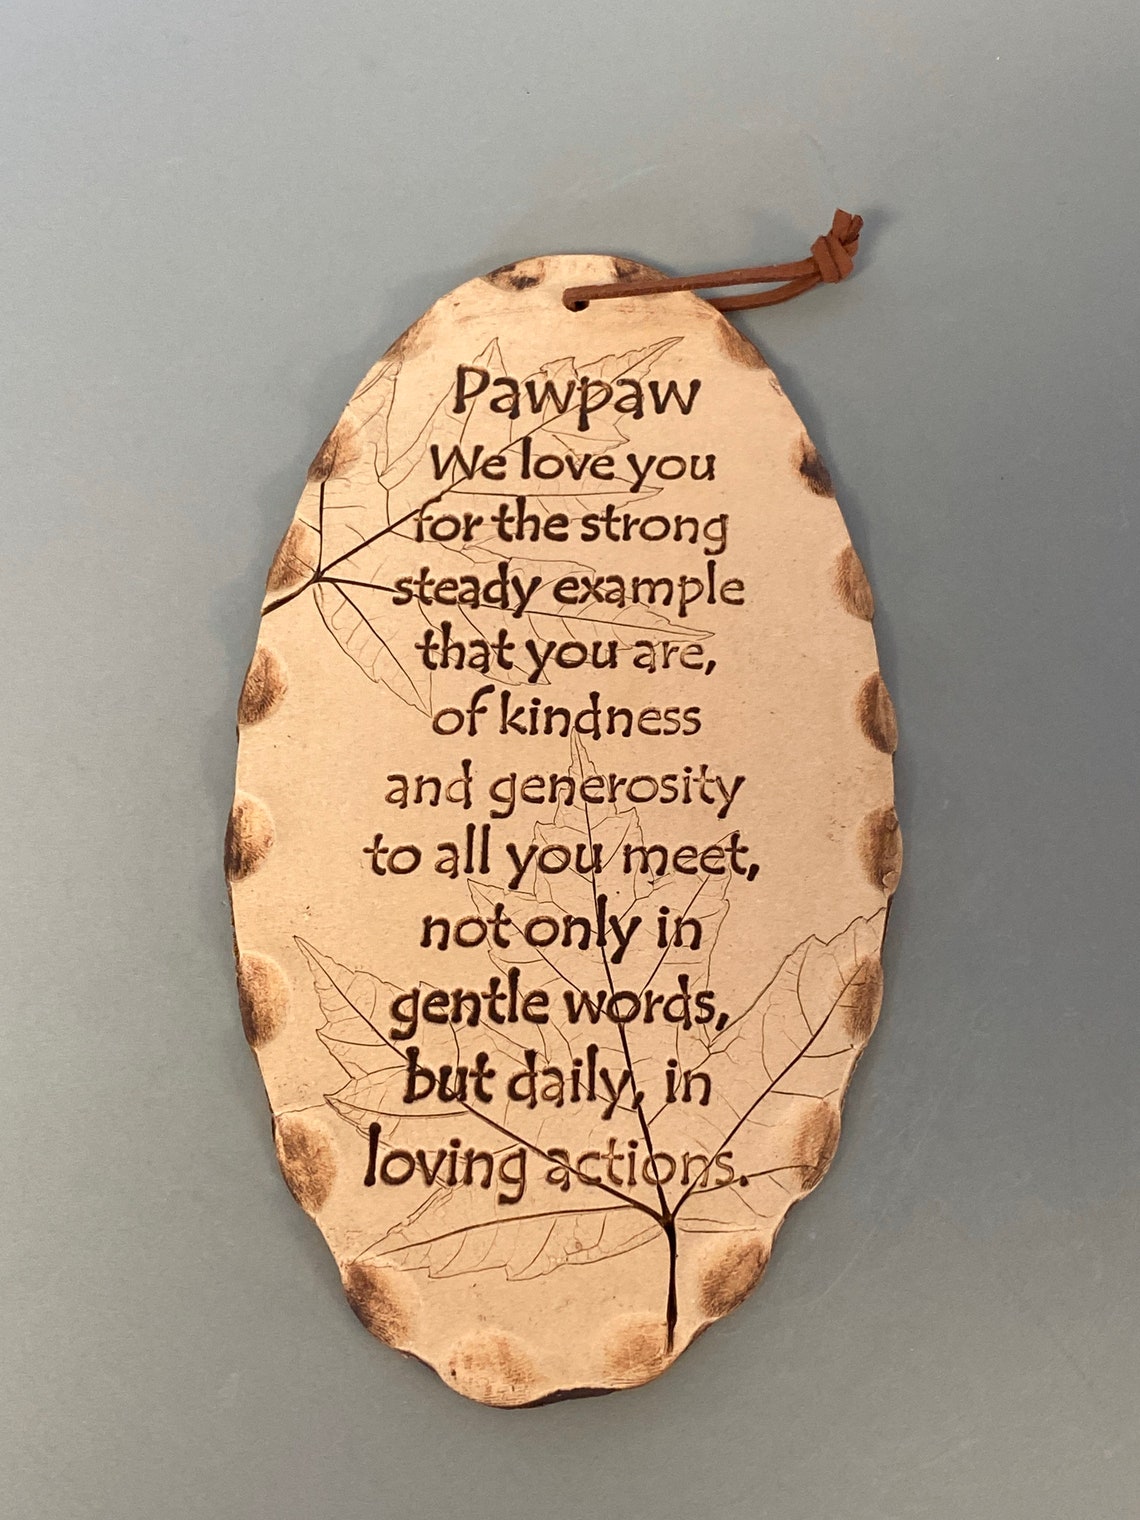 Pawpaw
We love you
for the strong
steady example
that you are,
of kindness
and generosity
to all you meet,
not only in
gentle words,
but daily, in
loving actions.